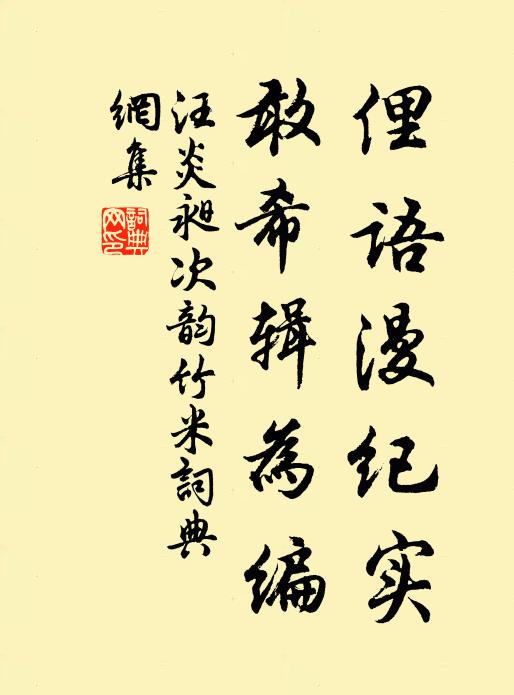 俚语漫纪实
敢希辑為编
汪炎昶次韵竹米詞典
網集
詞典網印